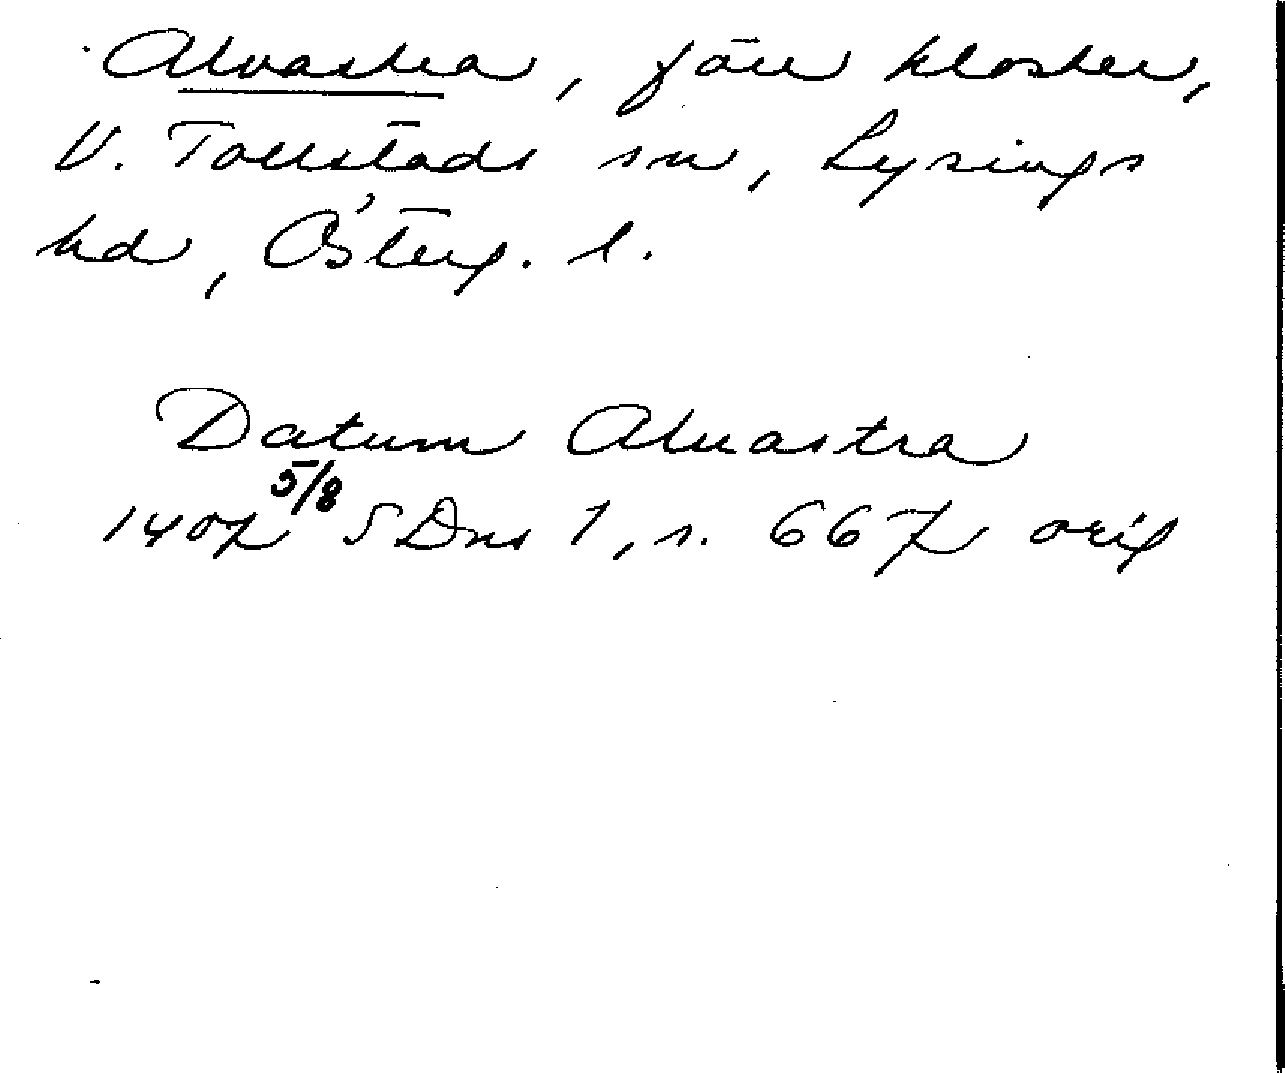 Alvastra, förr kloster,
V. Tollstads sn, Lysings
hd, Österg. l.
Datum Aluastra
1407 5/8 SDns 1, s. 667 orig